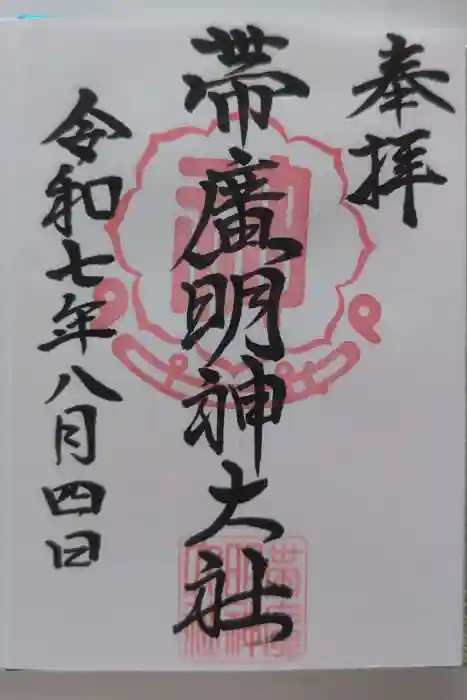 奉拝
帯廣明神大社
令和七年八月四日